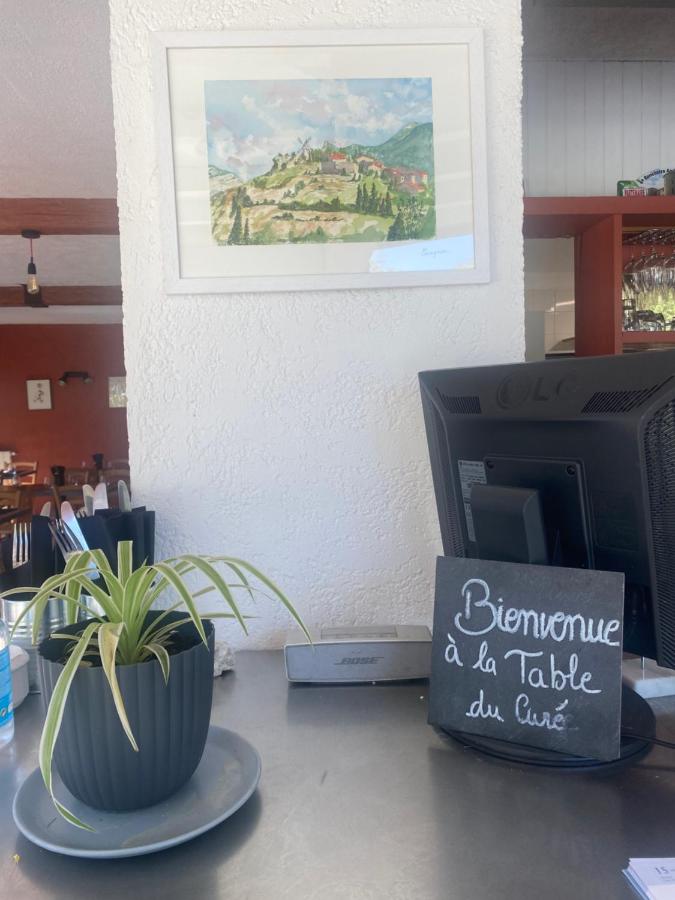 BOSE
Bienvenue
à la Table
du Curé
15-